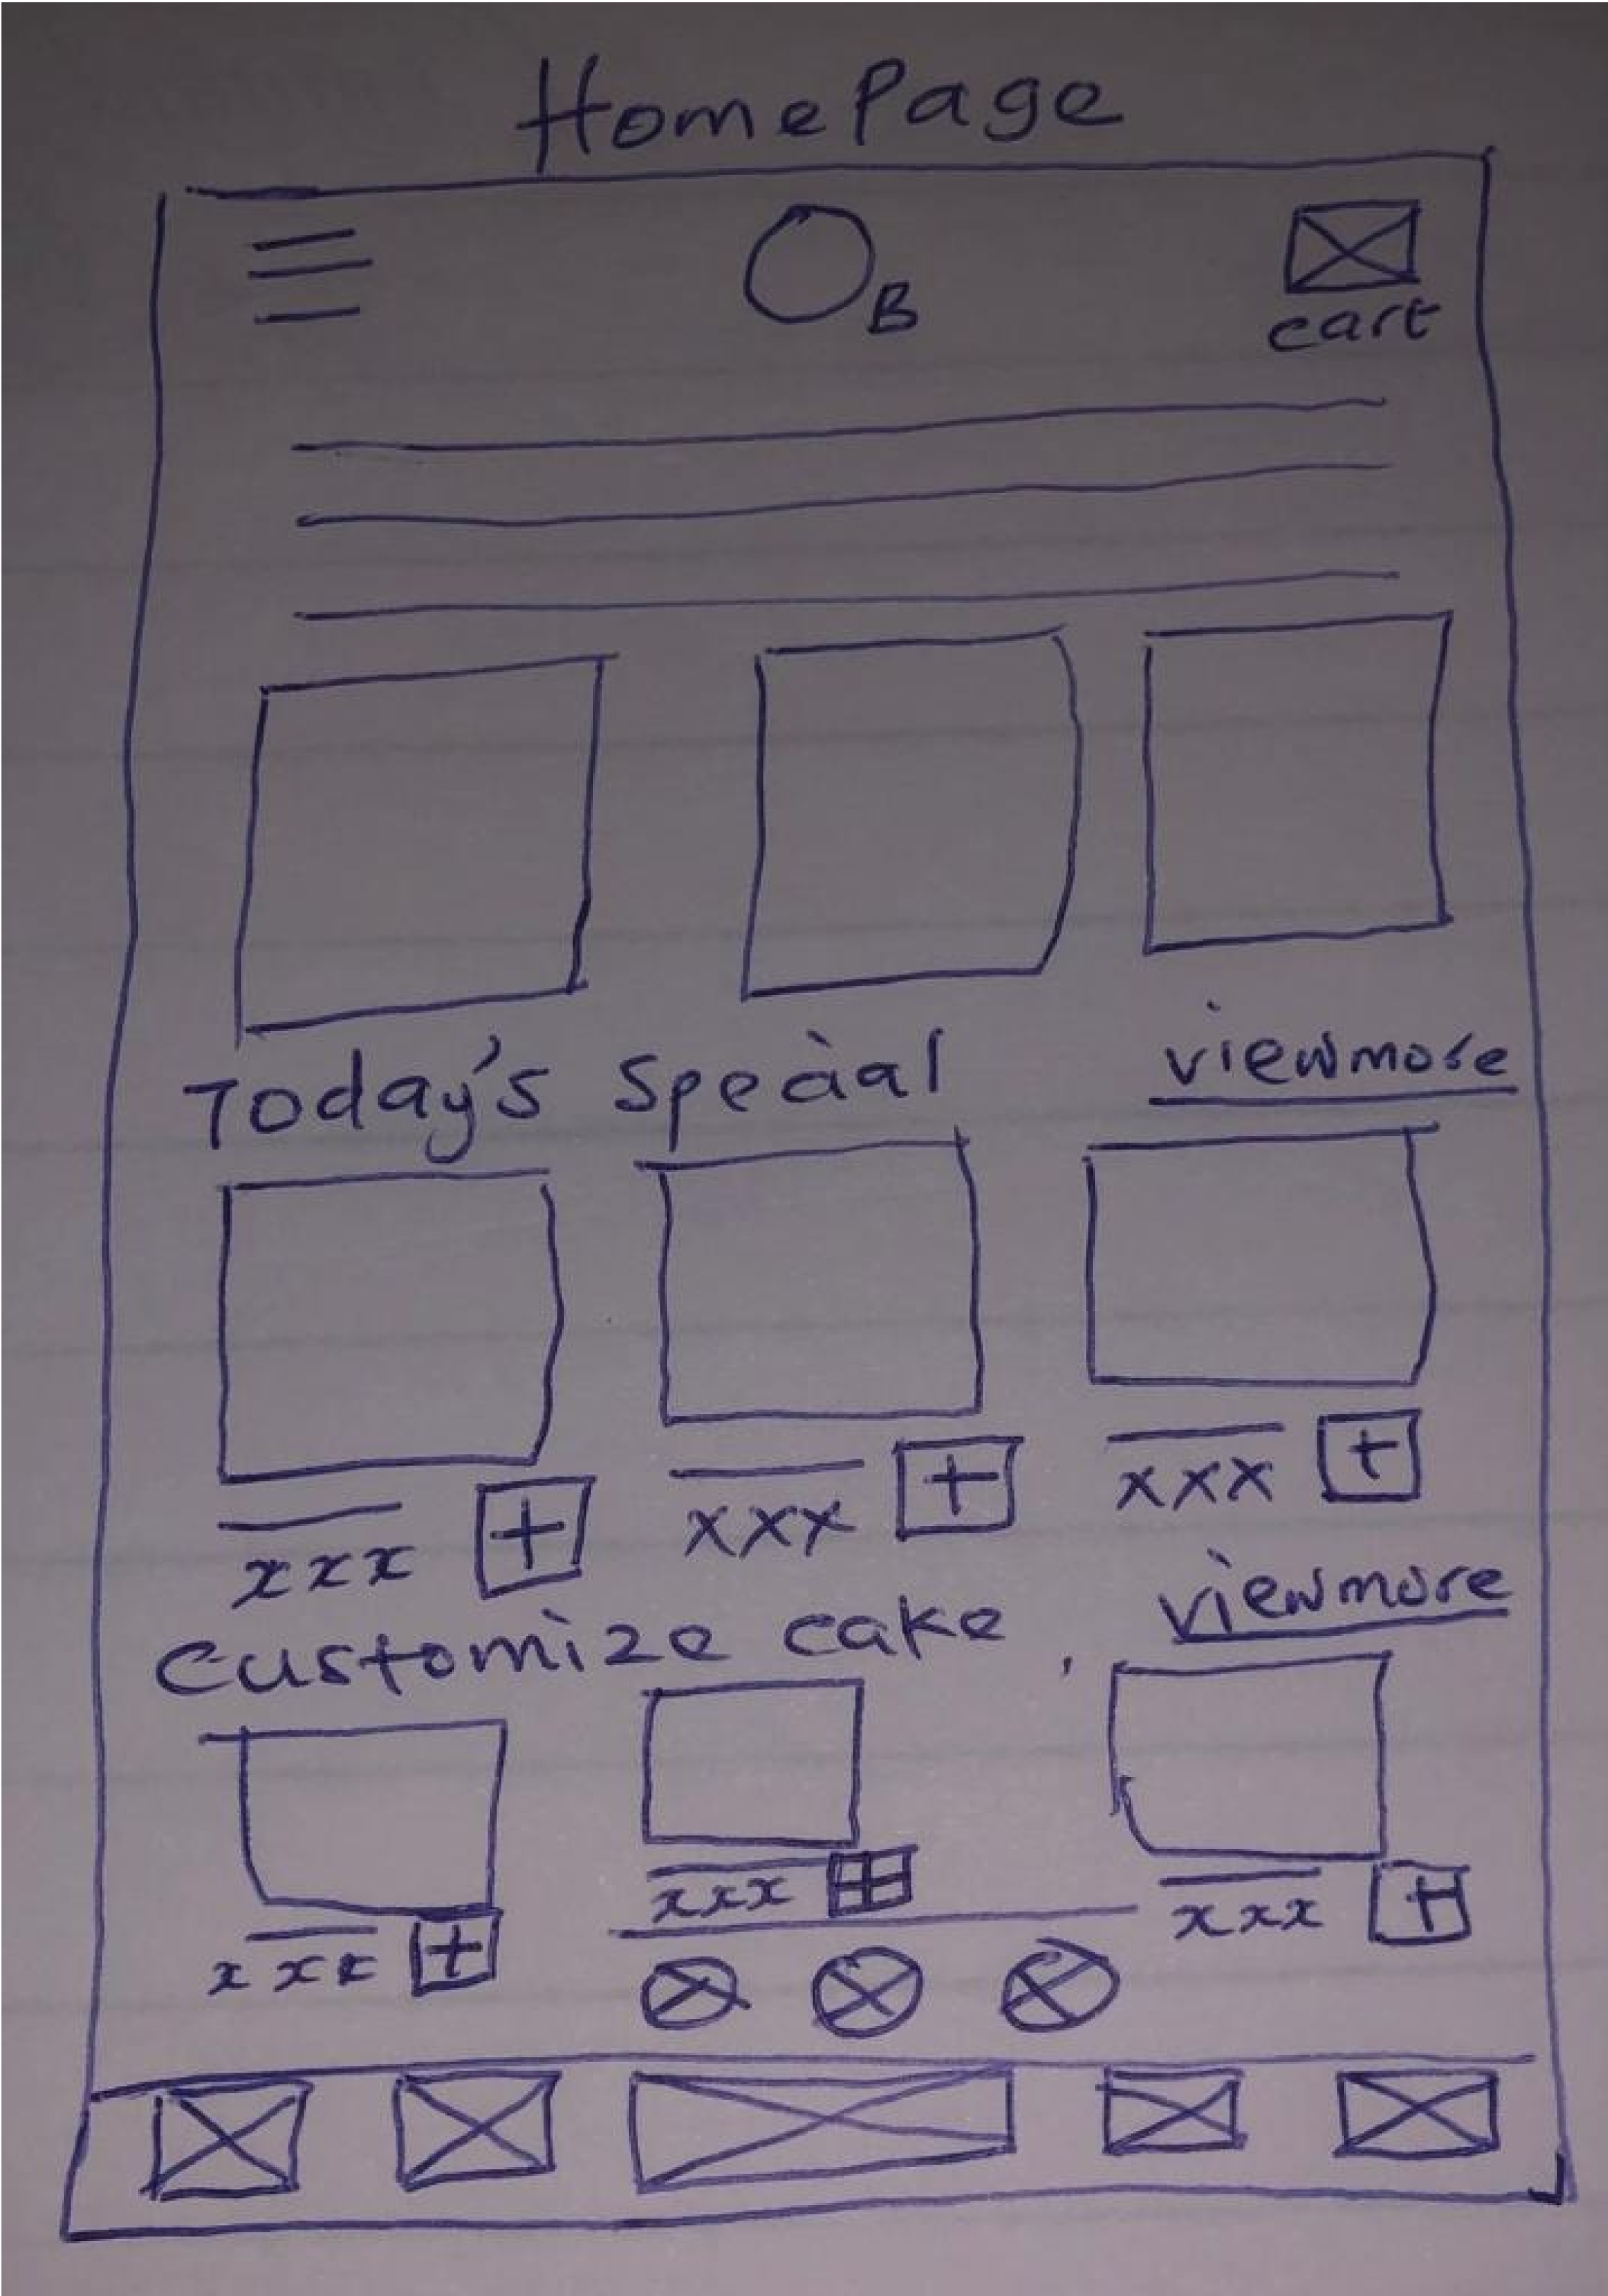 HomePage
B
cart
Today's Special
viewmore
xxx
xxx
xxx
Customize cake
viewmore
xxx
xxx
xxx